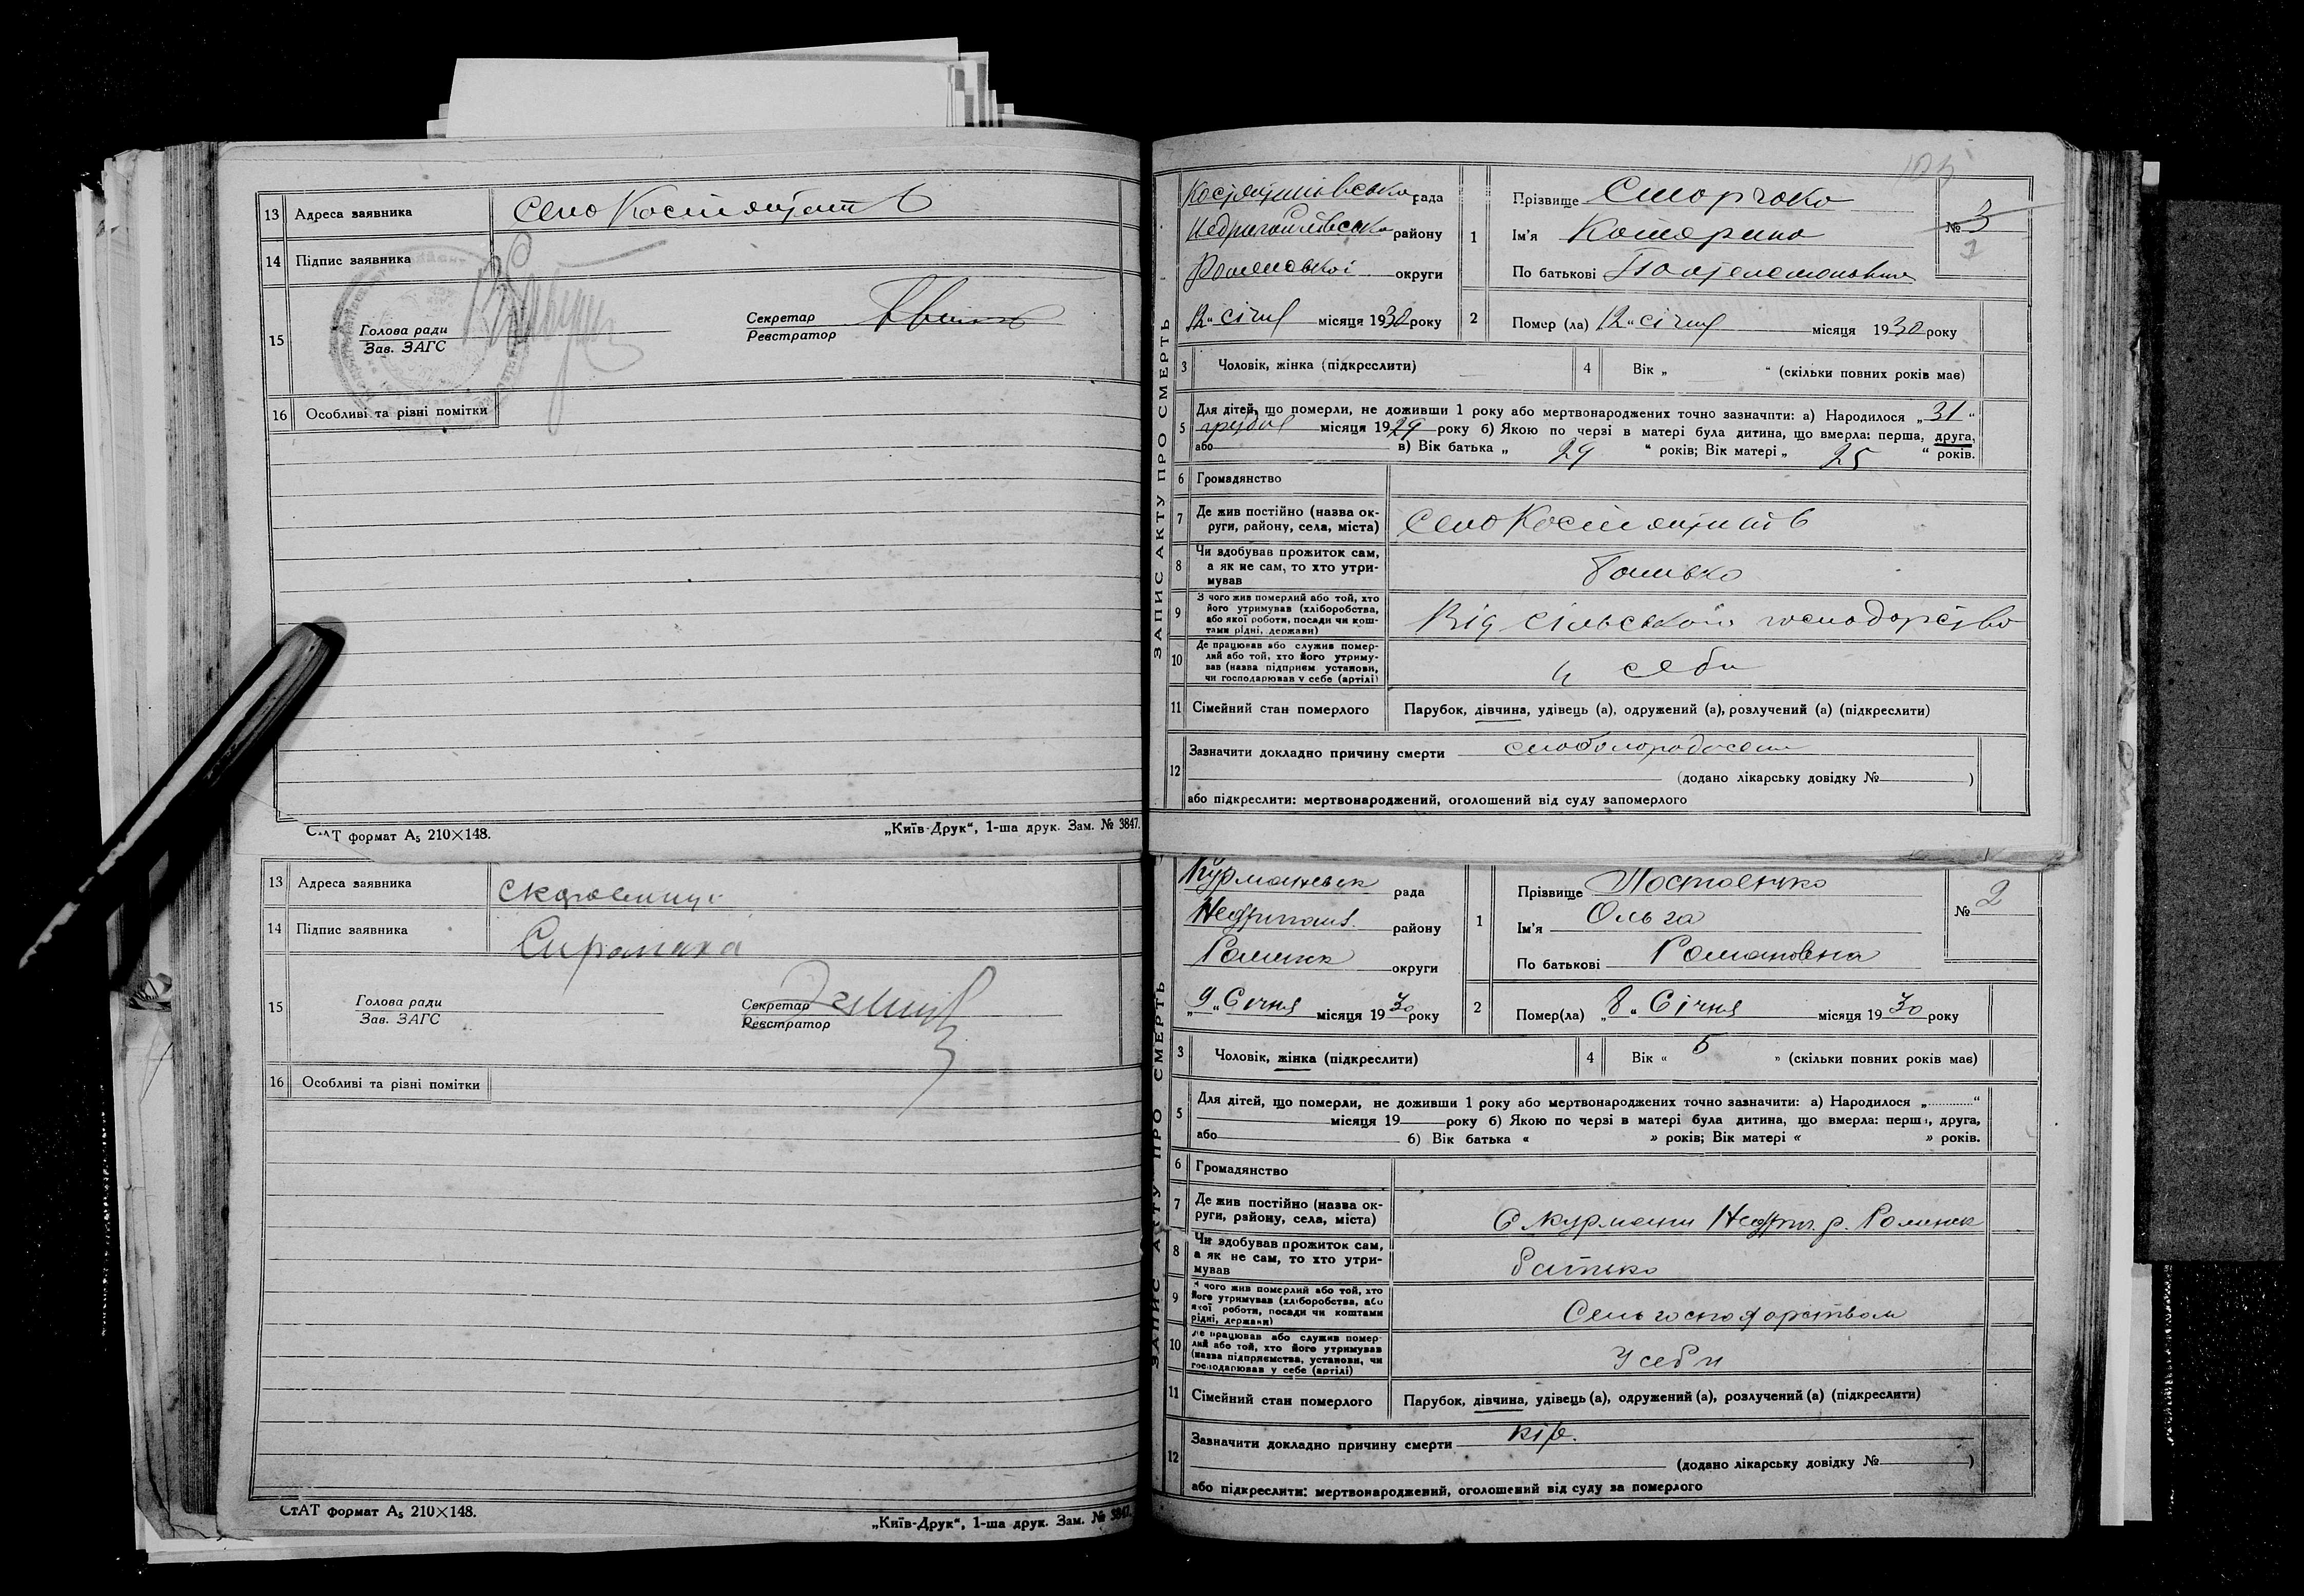 13 Адреса заявника Село Костянтинів
14 Підпис заявника
15 Голова ради
Зав. ЗАГС
Секретар
Реєстратор
16 Особливі та різні помітки
СтАТ формат А5 210×148.
„Київ-Друк“, 1-ша друк. Зам. № 3847.
ЗАПИС АКТУ ПРО СМЕРТЬ
Костянтинівська рада
Недригайлівсько району
Роменської округи
12 " січня місяця 1930 року
1 Прізвище Сторчака
Ім'я Катерина
По батькові Пантелемонівна
№ 3
1
2 Помер (ла) 12 " січня місяця 1930 року
3 Чоловік, жінка (підкреслити)
4 Вік „ “ (скільки повних років має)
5 Для дітей, що померли, не доживши 1 року або мертвонароджених точно зазначити: а) Народилося „ 31 “
грудня місяця 1929 року б) Якою по черзі в матері була дитина, що вмерла: перша, друга,
або в) Вік батька „ 29 “ років; Вік матері „ 25 “ років.
6 Громадянство
7 Де жив постійно (назва ок-
руги, району, села, міста) Село Костянтинів
8 Чи здобував прожиток сам,
а як не сам, то хто утри-
мував Батько
9 З чого жив померлий або той, хто
його утримував (хліборобства,
або якої роботи, посади чи кош-
тами рідні, держави) Від сільського господарство
10 Де працював або служив помер-
лий або той, хто його утриму-
вав (назва підприєм. установи,
чи господарював у себе (артілі) у себи
11 Сімейний стан померлого Парубок, дівчина, удівець (а), одружений (а), розлучений (а) (підкреслити)
12 Зазначити докладно причину смерти
(додано лікарську довідку № )
або підкреслити: мертвонароджений, оголошений від суду запомерлого
13 Адреса заявника
14 Підпис заявника Сиромаха
15 Голова ради
Зав. ЗАГС
Секретар
Реєстратор
16 Особливі та різні помітки
СтАТ формат А5 210×148.
„Київ-Друк“, 1-ша друк. Зам. № 3847.
ЗАПИС АКТУ ПРО СМЕРТЬ
Курманевск рада
Недригайл. району
Роменск округи
„ 9 “ Січня місяця 1930 року
1 Прізвище
Ім'я Ольга
По батькові Романовна
№ 2
2 Помер(ла) „ 8 “ Січня місяця 1930 року
3 Чоловік, жінка (підкреслити)
4 Вік « 5 » (скільки повних років має)
5 Для дітей, що померли, не доживши 1 року або мертвонароджених точно зазначити: а) Народилося „ “
місяця 19 року б) Якою по черзі в матері була дитина, що вмерла: перша, друга,
або б) Вік батька « » років; Вік матері « » років.
6 Громадянство
7 Де жив постійно (назва ок-
руги, району, села, міста) С Курмани Недриг. р. Роменск
8 Чи здобував прожиток сам,
а як не сам, то хто утри-
мував батько
9 З чого жив померлий або той, хто
його утримував (хліборобства, або
якої роботи, посади чи коштами
рідні, держави) Сель господарством
10 Де працював або служив помер-
лий або той, хто його утримував
(назва підприємства, установи, чи
господарював у себе (артілі) У себи
11 Сімейний стан померлого Парубок, дівчина, удівець (а), одружений (а), розлучений (а) (підкреслити)
12 Зазначити докладно причину смерти кір.
(додано лікарську довідку № )
або підкреслити: мертвонароджений, оголошений від суду за померлого